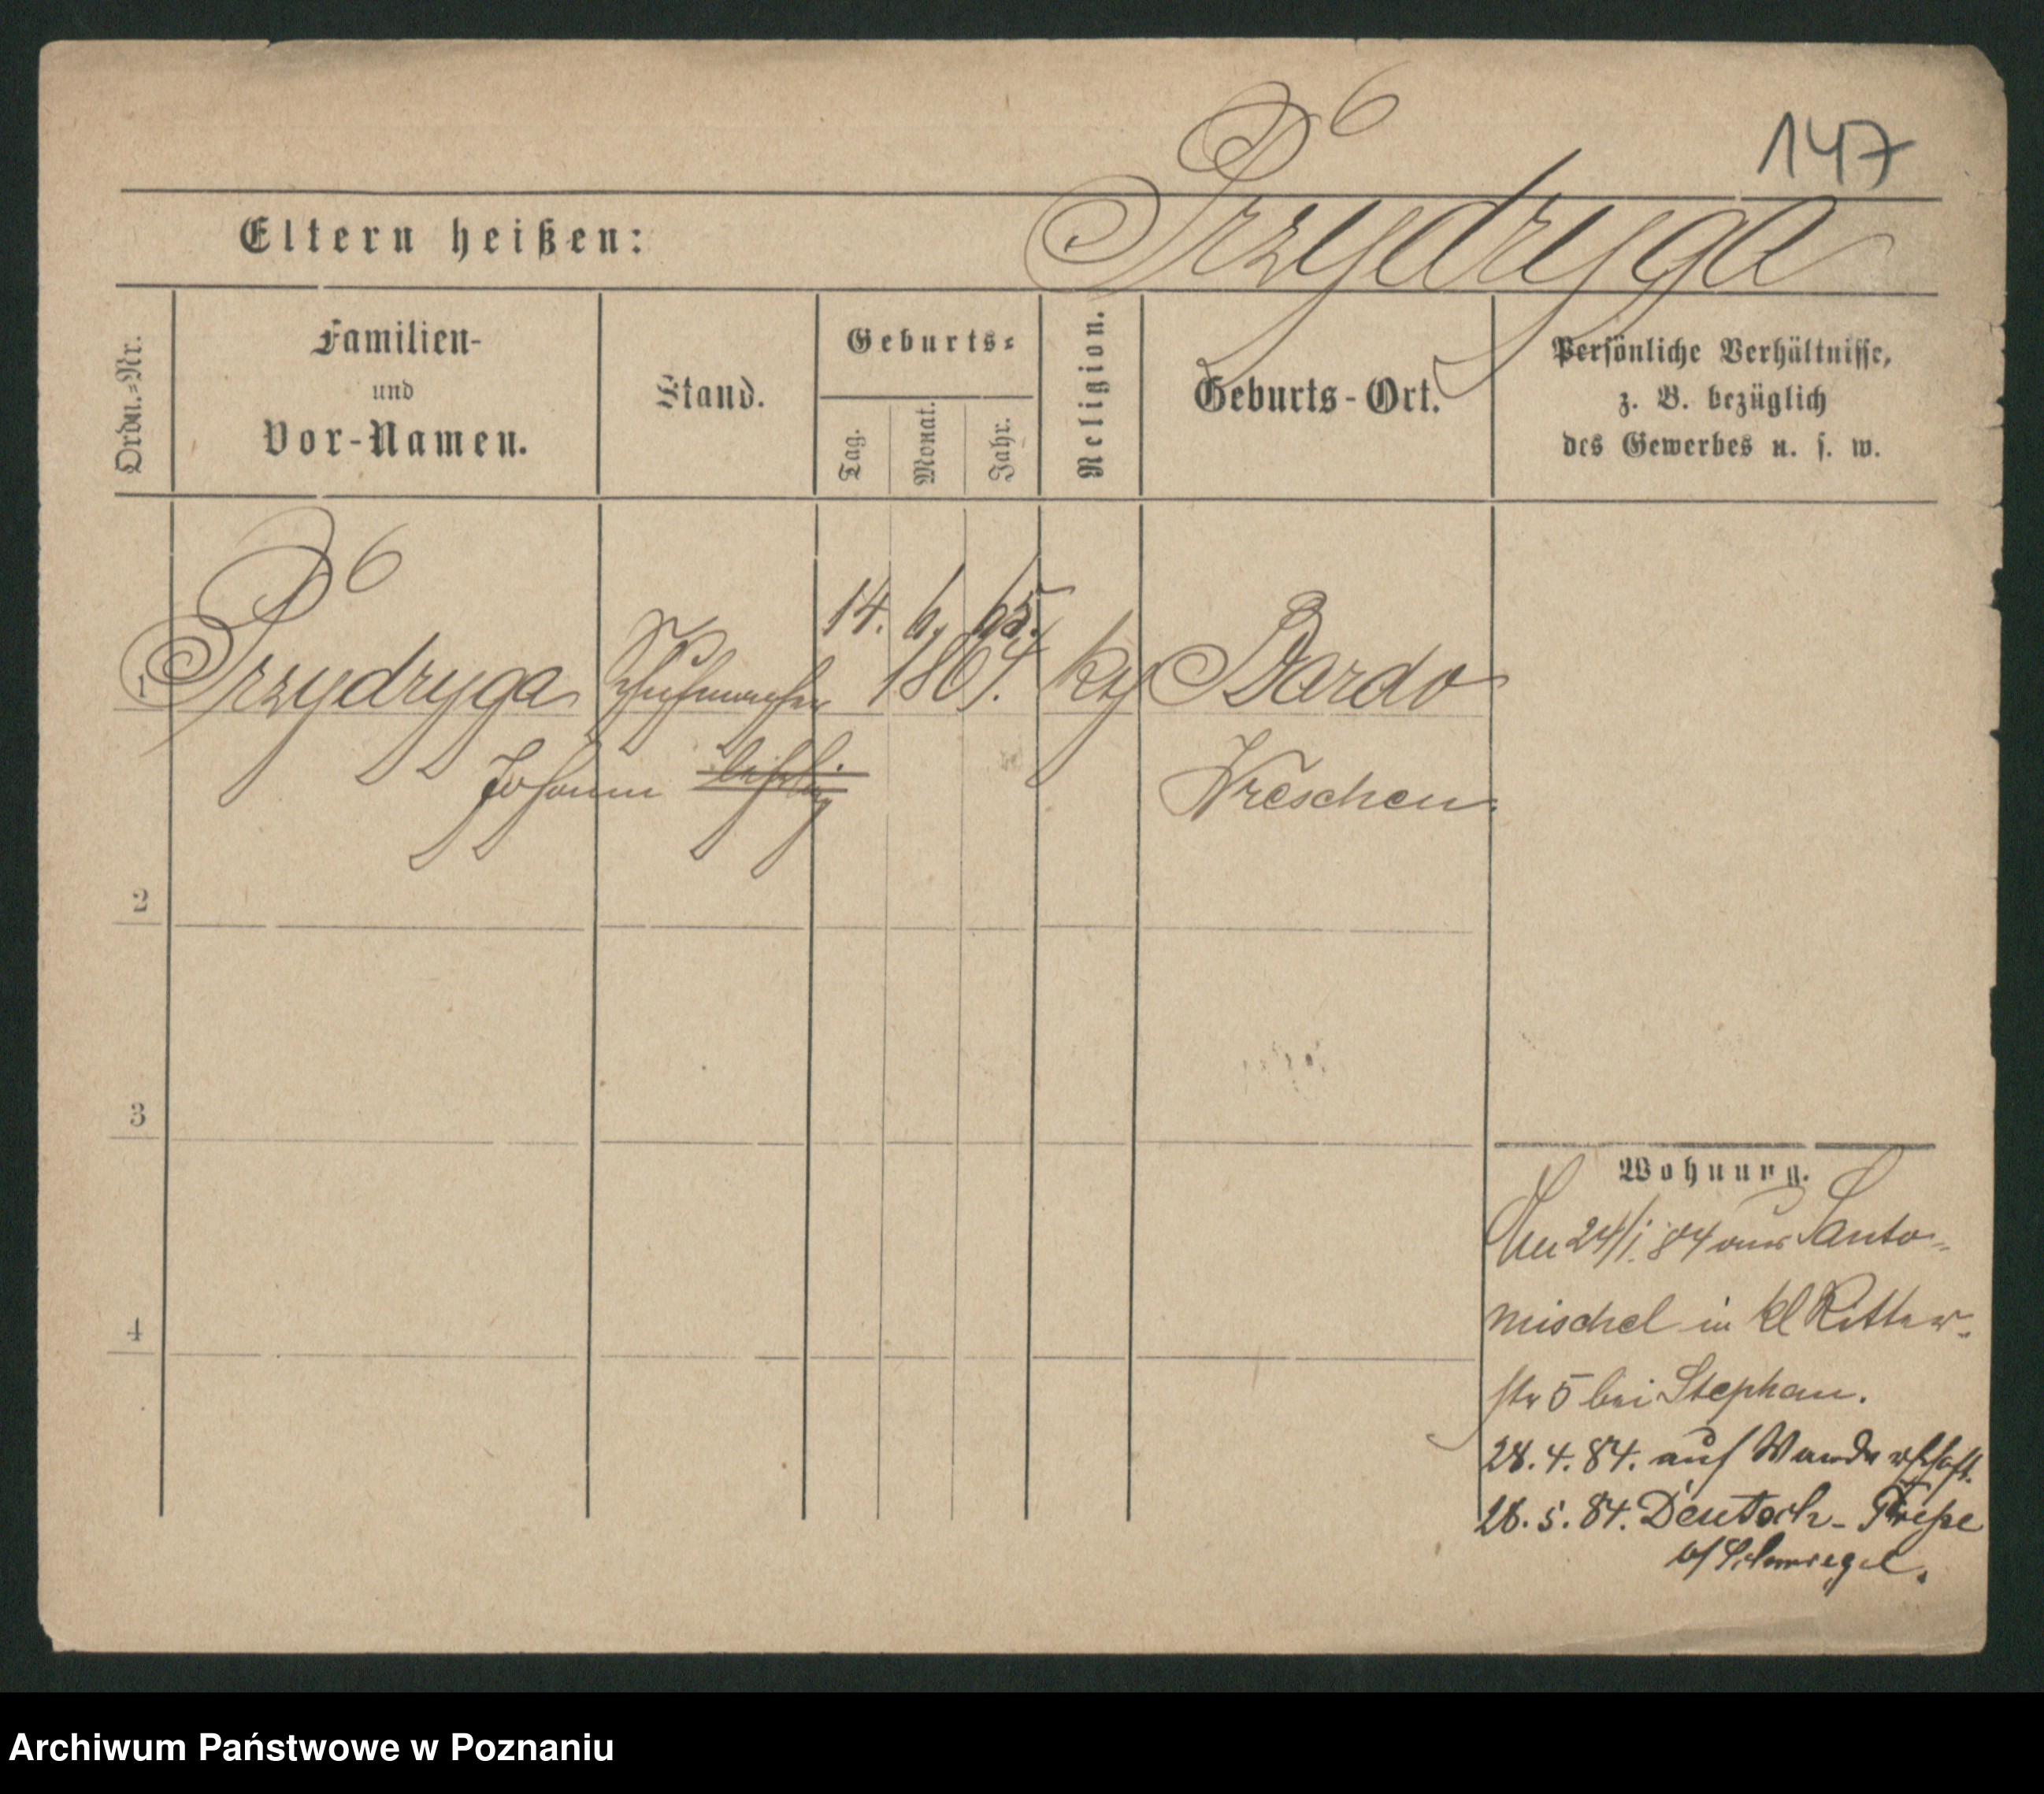 147
Przydryga
Eltern heißen:
Ordn.-Nr.
Familien-
und
Vor-Namen.
Stand.
Geburts-
Tag.
Monat.
Jahr.
Religion.
Geburts-Ort.
Persönliche Verhältnisse,
z. B. bezüglich
des Gewerbes u. s. w.
14. 6. 65.
1 Przydryga Schuhmacher 1864. Bardo
Johann Lehrling Wreschen.
2
3
4
Wohnung.
24/1. 84 aus Santo-
mischel in kl Ritter-
str 5 bei Stephan.
28.4.84. auf Wanderschaft.
28.5.84. Deutsch-Presse
b/Schmiegel.
Archiwum Państwowe w Poznaniu